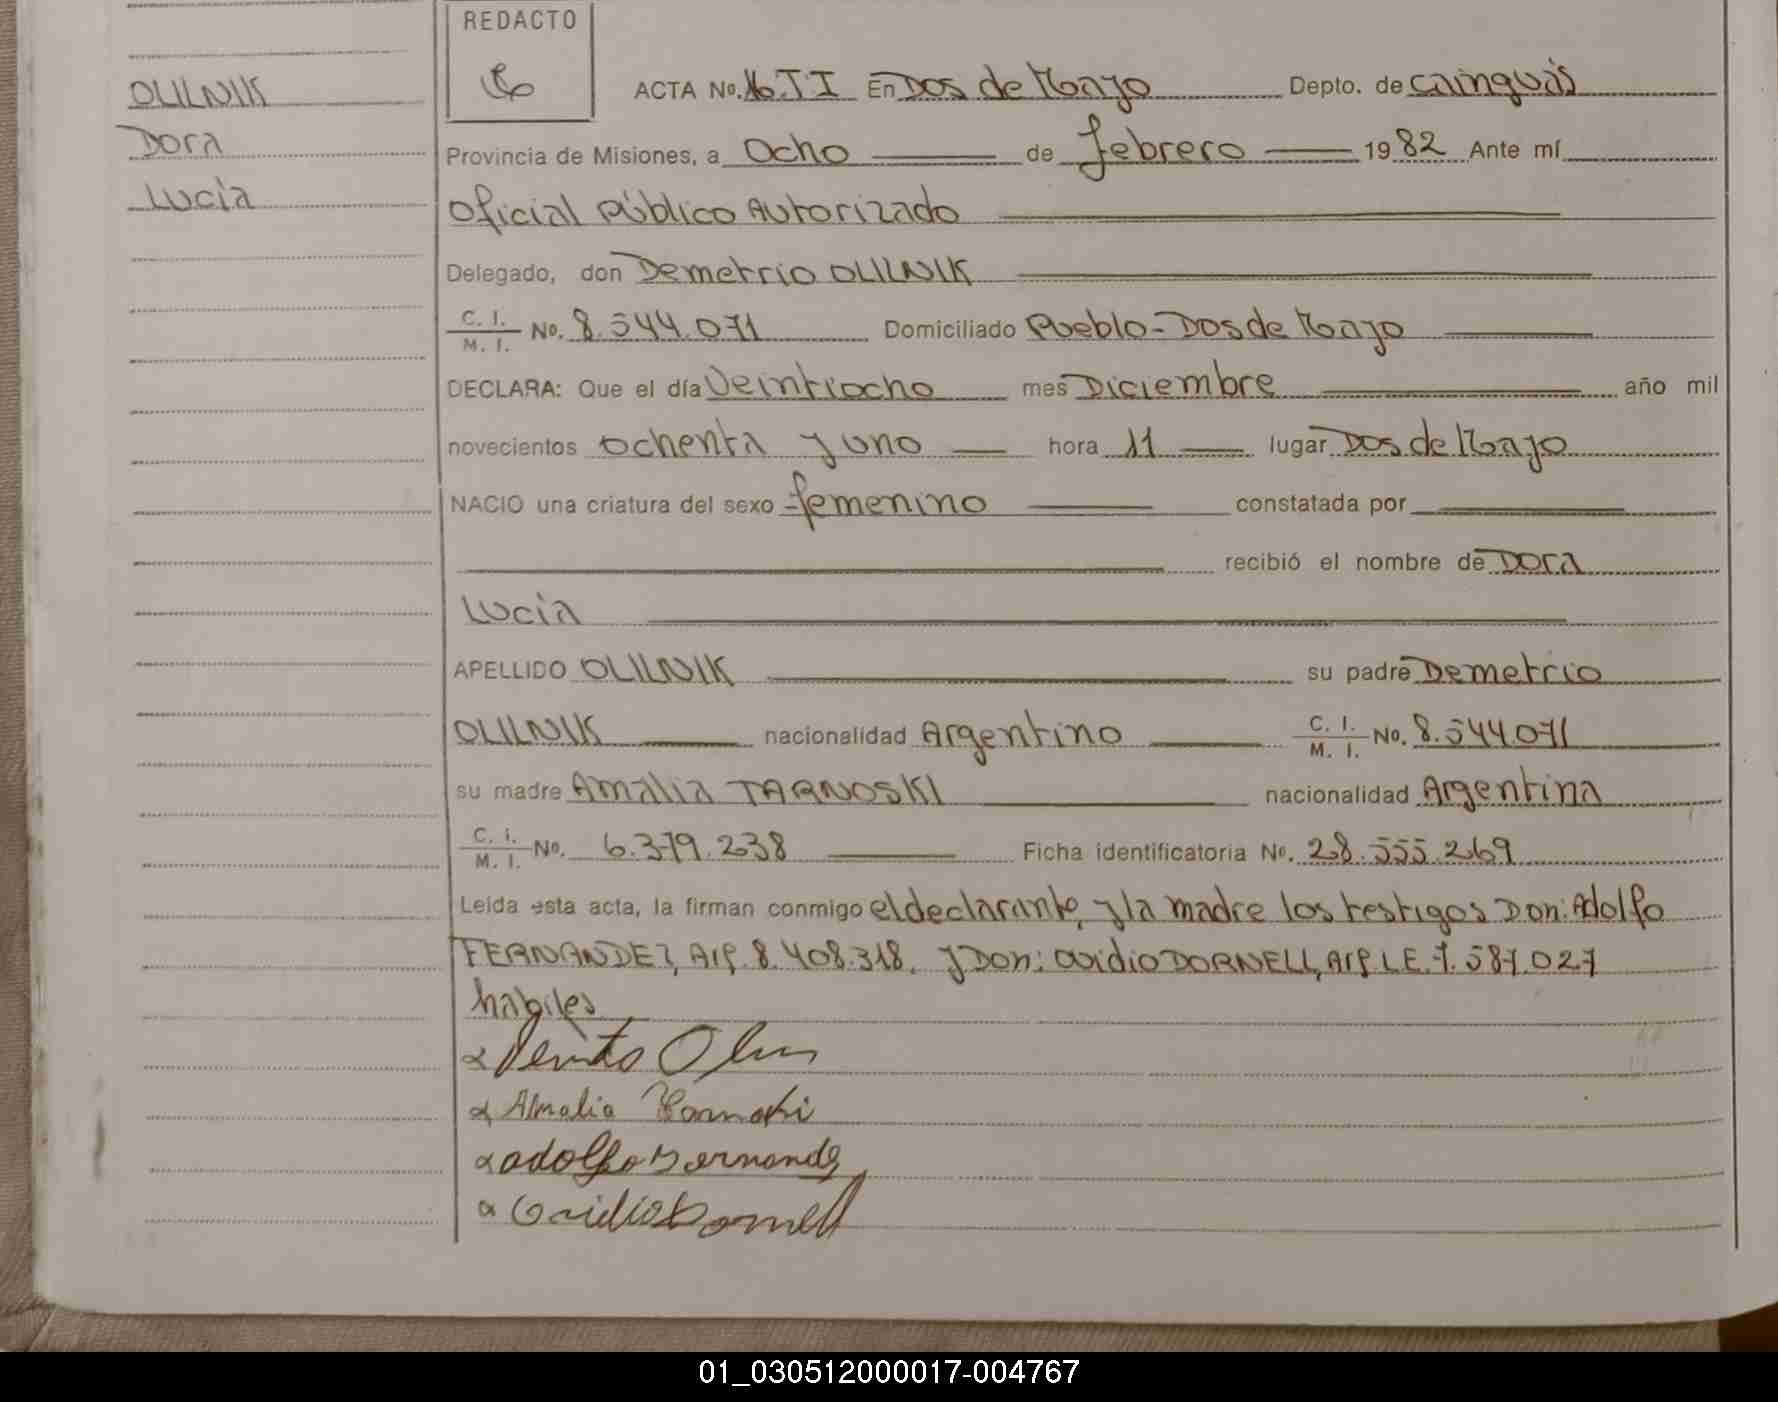 REDACTO
OLILNIK
Dora
Lucia
ACTA No. 16.TI En Dos de Mayo Depto. de Cainguás
Provincia de Misiones, a Ocho de febrero 1982 Ante mí
Oficial Público Autorizado
Delegado, don Demetrio OLILNIK
C. I. / M. I. No. 8.544.071 Domiciliado Pueblo-Dos de Mayo
DECLARA: Que el día Veintiocho mes Diciembre año mil
novecientos ochenta y uno hora 11 lugar Dos de Mayo
NACIO una criatura del sexo femenino constatada por
recibió el nombre de Dora
Lucia
APELLIDO OLILNIK su padre Demetrio
OLILNIK nacionalidad Argentino C. I. / M. I. No. 8.544.071
su madre Amalia TARNOSKI nacionalidad Argentina
C. I. / M. I. No. 6.379.238 Ficha identificatoria No. 28.555.269
Leída esta acta, la firman conmigo el declarante, y la madre los testigos Don: Adolfo
FERNANDEZ, AIP. 8.408.318. y Don: Ovidio DORNELL, AIP LE. 7.587.027
habiles
Amalia Tarnoski
adolfo Fernandez
Ovidio Dornell
01_030512000017-004767